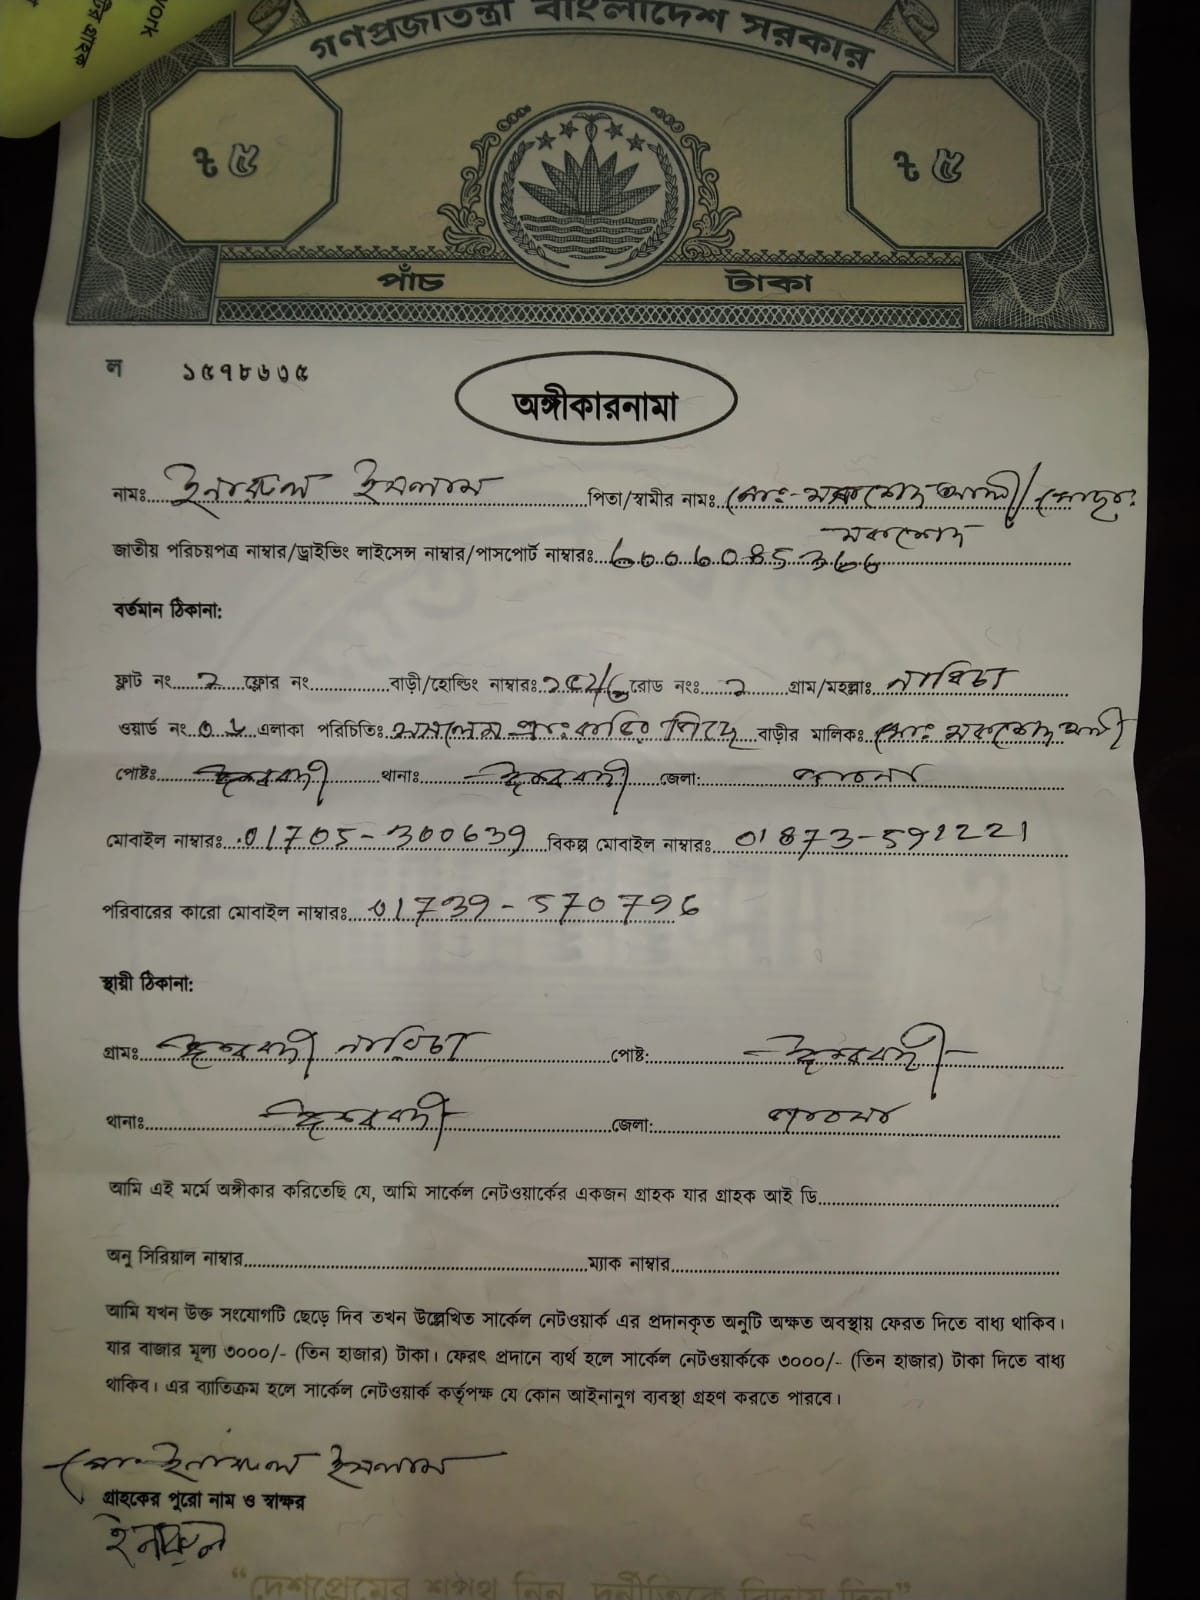 work
গণপ্রজাতন্ত্রী বাংলাদেশ সরকার
৳ ৫ ৳ ৫
পাঁচ টাকা
ল ১৫৭৮৬৩৫
অঙ্গীকারনামা
নামঃ ইনামুল ইসলাম পিতা/স্বামীর নামঃ মোঃ-
জাতীয় পরিচয়পত্র নাম্বার/ড্রাইভিং লাইসেন্স নাম্বার/পাসপোর্ট নাম্বারঃ
বর্তমান ঠিকানা:
ফ্লাট নং ২ ফ্লোর নং বাড়ী/হোল্ডিং নাম্বারঃ রোড নংঃ ২ গ্রাম/মহল্লাঃ
ওয়ার্ড নং এলাকা পরিচিতিঃ বাড়ীর মালিকঃ মোঃ
পোষ্টঃ ঈশ্বরদী থানাঃ ঈশ্বরদী জেলা: পাবনা
মোবাইল নাম্বারঃ 01705-300639 বিকল্প মোবাইল নাম্বারঃ
পরিবারের কারো মোবাইল নাম্বারঃ 01739-570796
স্থায়ী ঠিকানা:
গ্রামঃ ঈশ্বরদী পোষ্ট: ঈশ্বরদী
থানাঃ ঈশ্বরদী জেলা: পাবনা
আমি এই মর্মে অঙ্গীকার করিতেছি যে, আমি সার্কেল নেটওয়ার্কের একজন গ্রাহক যার গ্রাহক আই ডি
অনু সিরিয়াল নাম্বার ম্যাক নাম্বার
আমি যখন উক্ত সংযোগটি ছেড়ে দিব তখন উল্লেখিত সার্কেল নেটওয়ার্ক এর প্রদানকৃত অনুটি অক্ষত অবস্থায় ফেরত দিতে বাধ্য থাকিব।
যার বাজার মূল্য ৩০০০/- (তিন হাজার) টাকা। ফেরৎ প্রদানে ব্যর্থ হলে সার্কেল নেটওয়ার্ককে ৩০০০/- (তিন হাজার) টাকা দিতে বাধ্য
থাকিব। এর ব্যাতিক্রম হলে সার্কেল নেটওয়ার্ক কর্তৃপক্ষ যে কোন আইনানুগ ব্যবস্থা গ্রহণ করতে পারবে।
মোঃ ইনামুল ইসলাম
গ্রাহকের পুরো নাম ও স্বাক্ষর
ইনামুল
“দেশপ্রেমের শপথ নিন, দুর্নীতিকে বিদায় দিন”